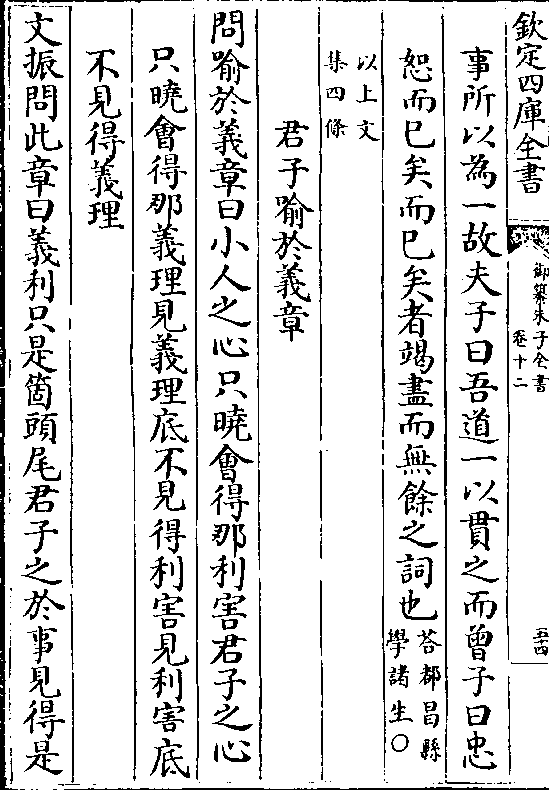 欽定四庫全書
御纂朱子全書
卷十二
五十四
事所以為一故夫子曰吾道一以貫之而曾子曰忠
恕而已矣而已矣者竭盡而無餘之詞也答都昌縣學諸生○
以上文
集四條
君子喻於義章
問喻於義章曰小人之心只曉會得那利害君子之心
只曉會得那義理見義理底不見得利害見利害底
不見得義理
文振問此章曰義利只是箇頭尾君子之於事見得是